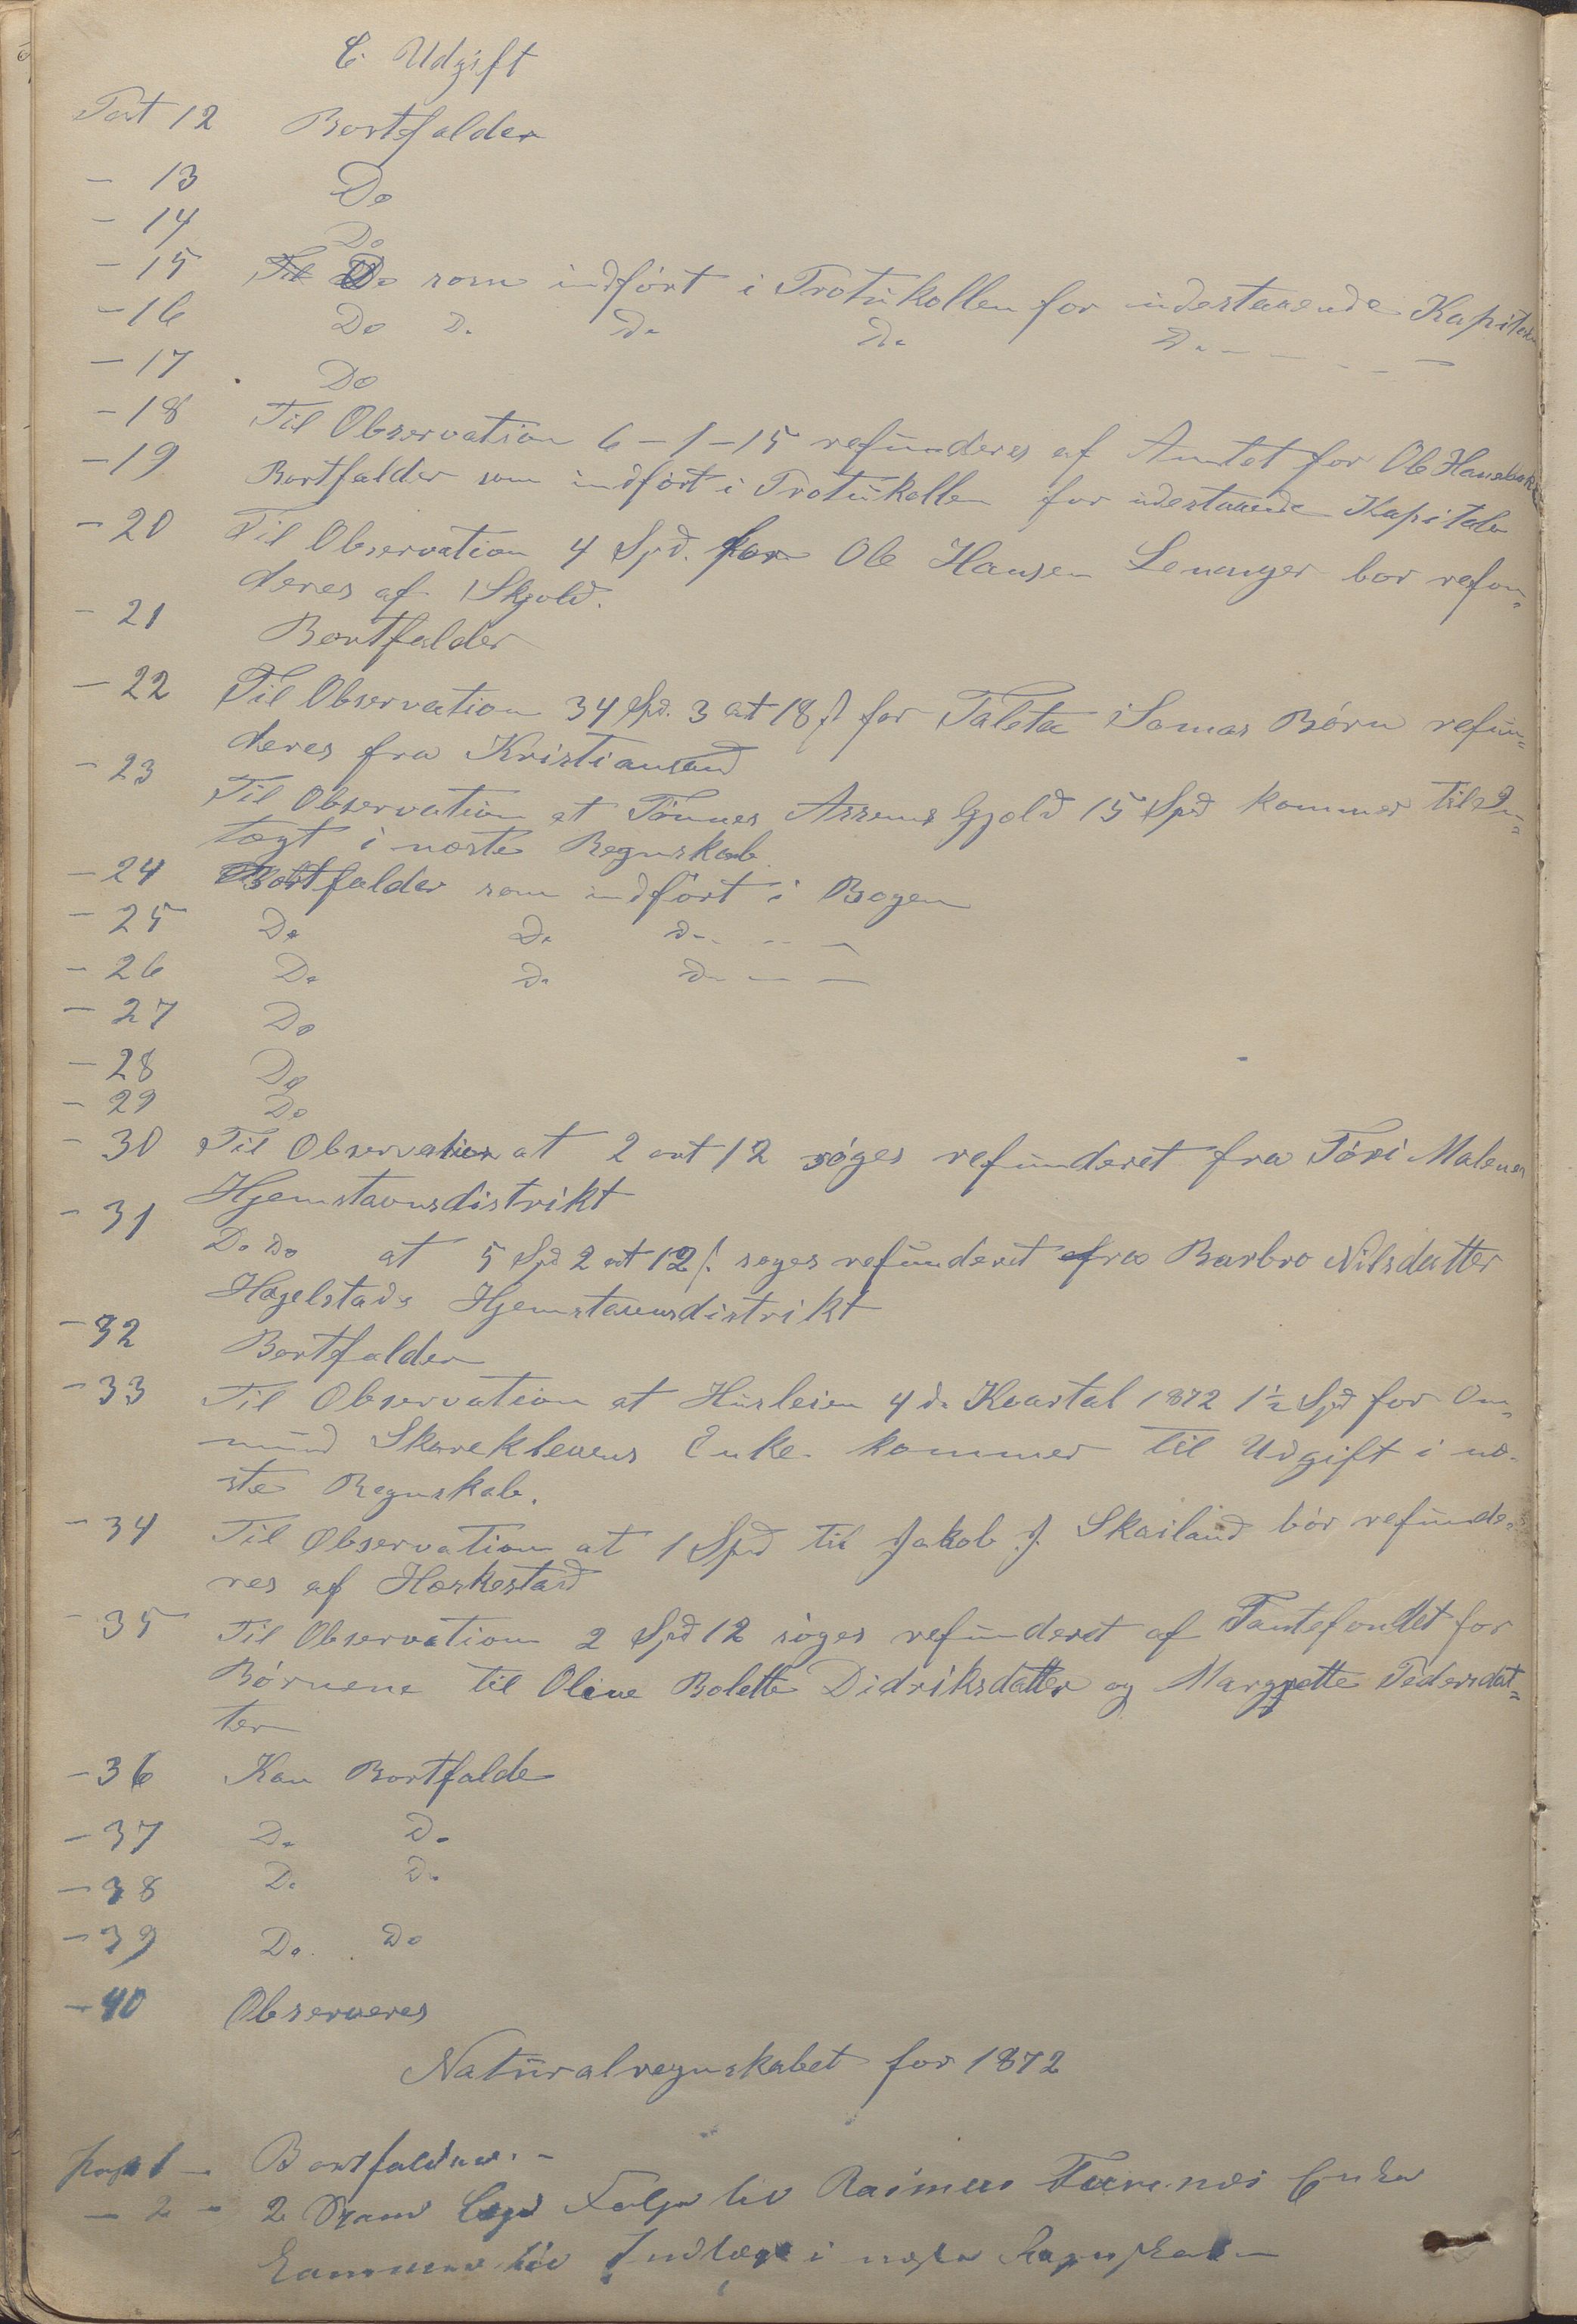 C. Udgift
Post 12 Bortfalder
- 13 Do
- 14 Do
- 15 Do som indført i Protokollen for udestaaende Kapitaler
- 16 Do D. do do do - - - - -
- 17 Do
- 18 Til Observation 6-1-15 refunderes af Amtet for Ole
- 19 Bortfalder som indført i Protokollen for udestaaende Kapitaler
- 20 Til Observation 4 Spd. for Ole Hansen bør refun=
deres af Skjold.
- 21 Bortfalder
- 22 Til Observation 34 Spd. 3 ort 18 s for Taleta Børn refun=
deres fra Kristiansand
- 23 Til Observation at Tønnes Gjeld 15 Spd kommer til In=
tægt i næste Regnskab.
- 24 Bortfalder som indført i Bogen
- 25 Do Do do - - -
- 26 Do do do - - -
- 27 Do
- 28 Do
- 29 Do
- 30 Til Observation at 2 ort 12 søges refunderet fra Tøri Malenes
Hjemstavnsdistrikt
- 31 Do Do at 5 Spd 2 ort 12 s. søges refunderet fra Barbro Nilsdatter
Hægelstads Hjemstavnsdistrikt
- 32 Bortfalder
- 33 Til Observation at Husleien 4de Kvartal 1872 1½ Spd for Om=
mund Skareklevens Enke kommer til Udgift i næ-
ste Regnskab.
- 34 Til Observation at 1 Spd til Jakob J. Skailand bør refunde-
res af Heskestad
- 35 Til Observation 2 Spd 12 søges refunderet af Fantefondet for
Børnene til Oline Bolette Didriksdatter og Margrette Pedersdat=
ter
- 36 Kan Bortfalde
- 37 Do do
- 38 Do do
- 39 Do. Do
- 40 Observeres
Naturalregnskabet for 1872
post 1 - Bortfalder. -
- 2 - 2 til Rasmus Enke
kommer til Indtægt i næste Regnskab